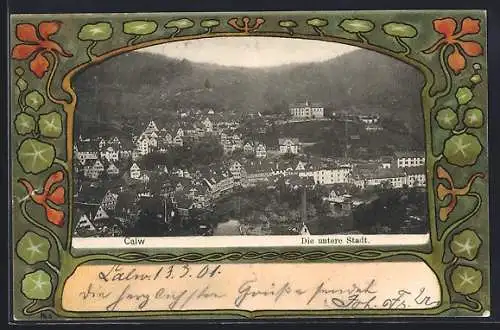 Calw
Die untere Stadt.
Calw 13.5.01.
die herzlichsten Grüße sendet
Joh.